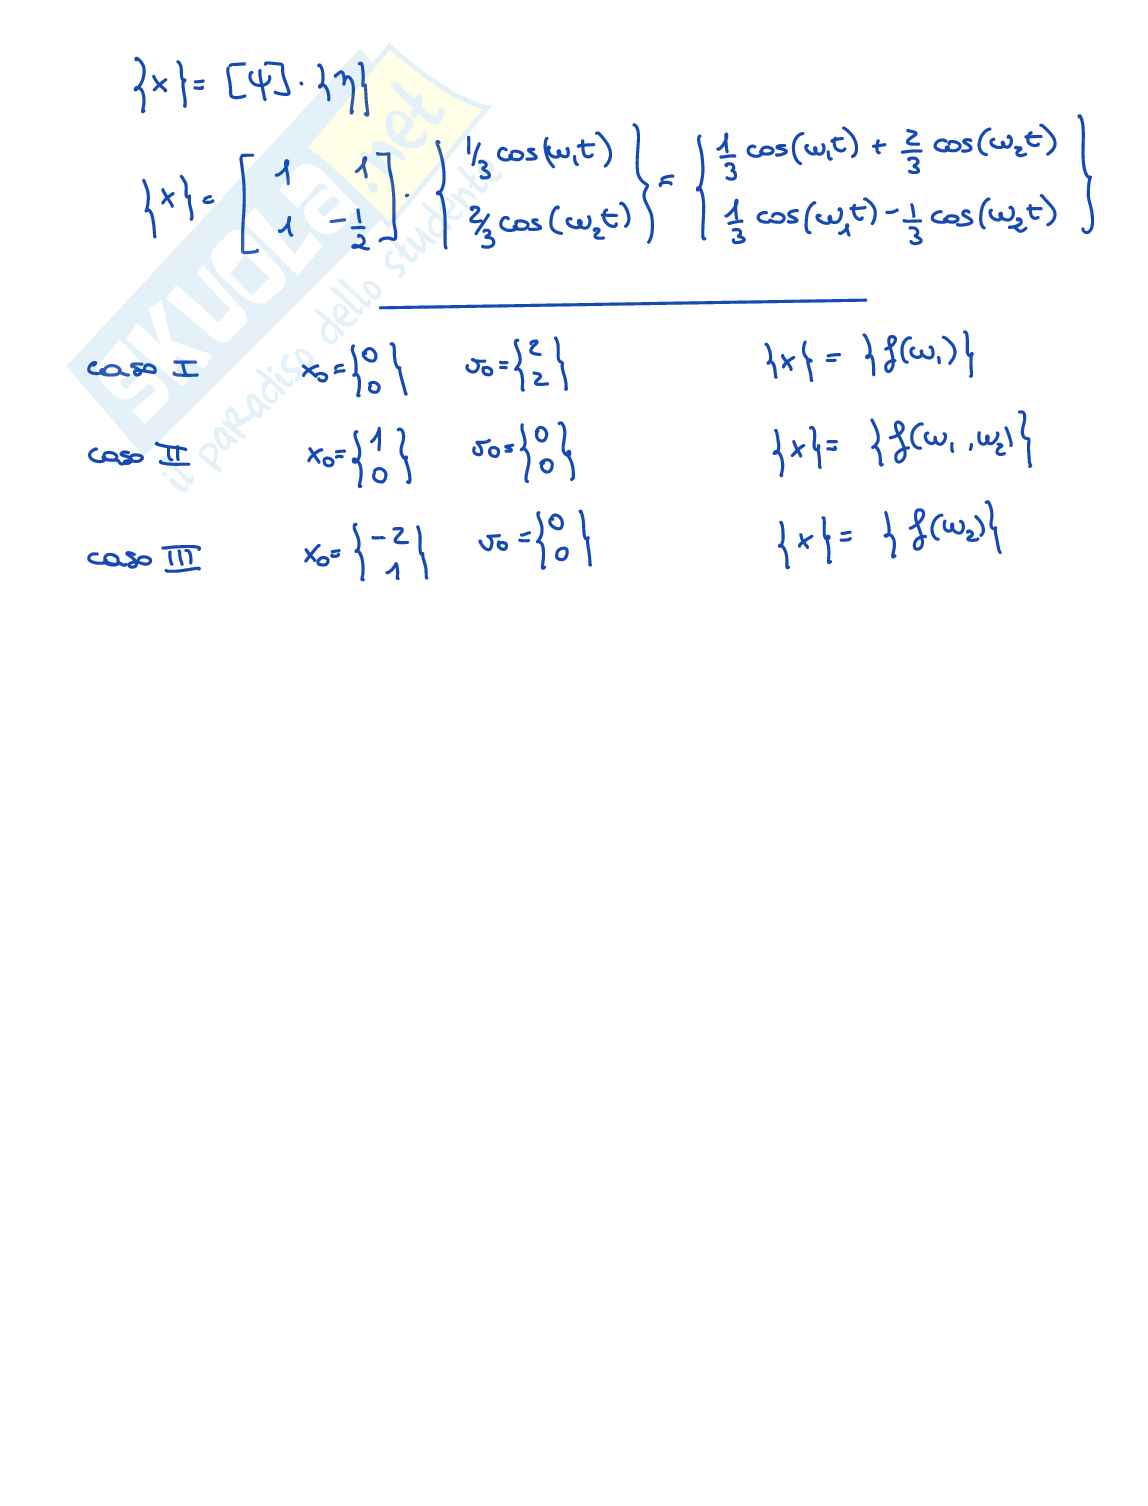 {x} = [ψ] · {η}
{x} = [1 1; 1 -1/2] · {1/3 cos(ω₁t); 2/3 cos(ω₂t)} = {1/3 cos(ω₁t) + 2/3 cos(ω₂t); 1/3 cos(ω₁t) - 1/3 cos(ω₂t)}
caso I x₀ = {0; 0} v₀ = {2; 2} {x} = {f(ω₁)}
caso II x₀ = {1; 0} v₀ = {0; 0} {x} = {f(ω₁, ω₂)}
caso III x₀ = {-2; 1} v₀ = {0; 0} {x} = {f(ω₂)}
SKUOLA.net
il paradiso dello studente